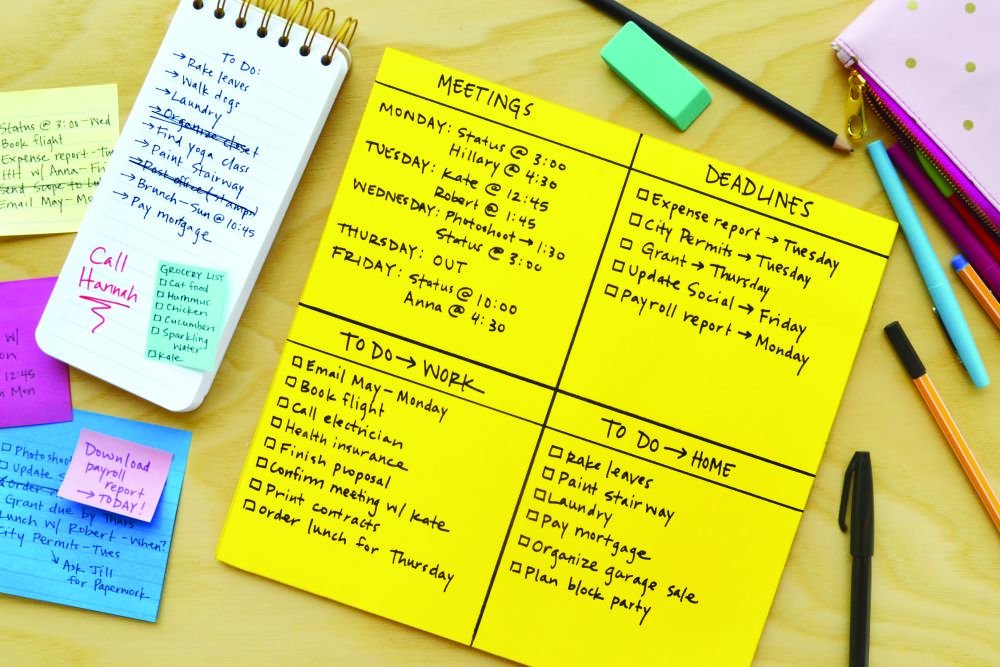 Status @ 3:00-Wed
Book flight
Expense report-Tu
HH w/ Anna-Fri
Send Scope to
Email May-Mo
To Do:
→Rake leaves
→Walk dogs
→Laundry
→Organize closet
→Find yoga class
→Paint Stairway
→Post office (stamps)
→Brunch-Sun @ 10:45
→Pay mortgage
Call
Hannah
GROCERY LIST
Cat food
Hummus
Chicken
Cucumbers
Sparkling
Water
Kale
w/
on
12:45
Mon
Photoshoot
Update S
Order
Grant due by Thurs
Lunch w/ Robert-When?
City Permits-Tues
↳ Ask Jill
for Paperwork
Download
payroll
report
→TODAY!
MEETINGS
MONDAY: Status @ 3:00
Hillary @ 4:30
TUESDAY: Kate @ 12:45
Robert @ 1:45
WEDNESDAY: Photoshoot→1:30
Status @ 3:00
THURSDAY: OUT
FRIDAY: Status @ 10:00
Anna @ 4:30
DEADLINES
Expense report→Tuesday
City Permits→Tuesday
Grant→Thursday
Update Social→Friday
Payroll report→Monday
TO DO→WORK
Email May-Monday
Book flight
Call electrician
Health insurance
Finish proposal
Confirm meeting w/ Kate
Print contracts
Order lunch for Thursday
TO DO→HOME
Rake leaves
Paint stairway
Laundry
Pay mortgage
Organize garage sale
Plan block party